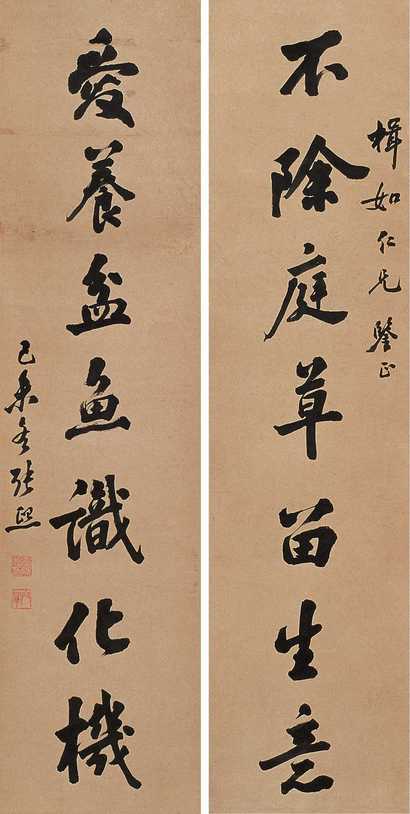 楫如仁兄鑒正
不除庭草畱生意
愛養盆魚識化機
己未冬張熙